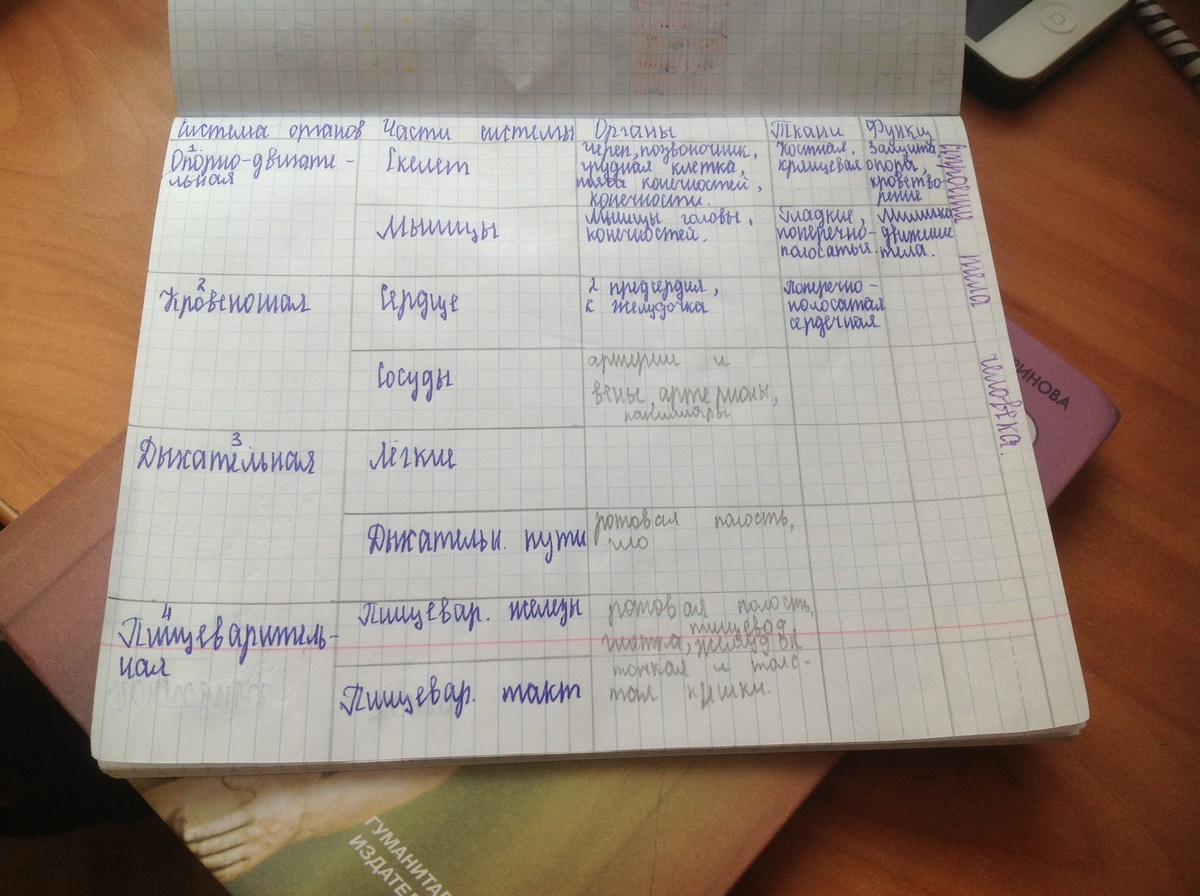 Система органов Части системы Органы Ткани Функц
1
Опорно-двигате-
льная
Скелет
Череп, позвоночник,
грудная клетка,
пояса конечностей,
конечности.
Костная,
хрящевая
Защита,
опора,
кроветво-
рение
Мышцы
Мышцы головы,
конечностей.
Гладкие,
поперечно-
полосатые.
Мимика,
движение
тела.
2
Кровеносная
Сердце
2 предсердия,
2 желудочка
Поперечно-
полосатая
сердечная
Сосуды
артерии и
вены, артериолы,
капилляры
3
Дыхательная
Лёгкие
Дыхательн. пути
ротовая полость,
4
Пищеваритель-
ная
Пищевар. железы
Пищевар. такт
ротовая полость,
пищевод.
глотка, желудок
тонкая и толс-
тая кишки.
Строение тела человека.
ГУМАНИТАР
ИЗДАТЕЛ